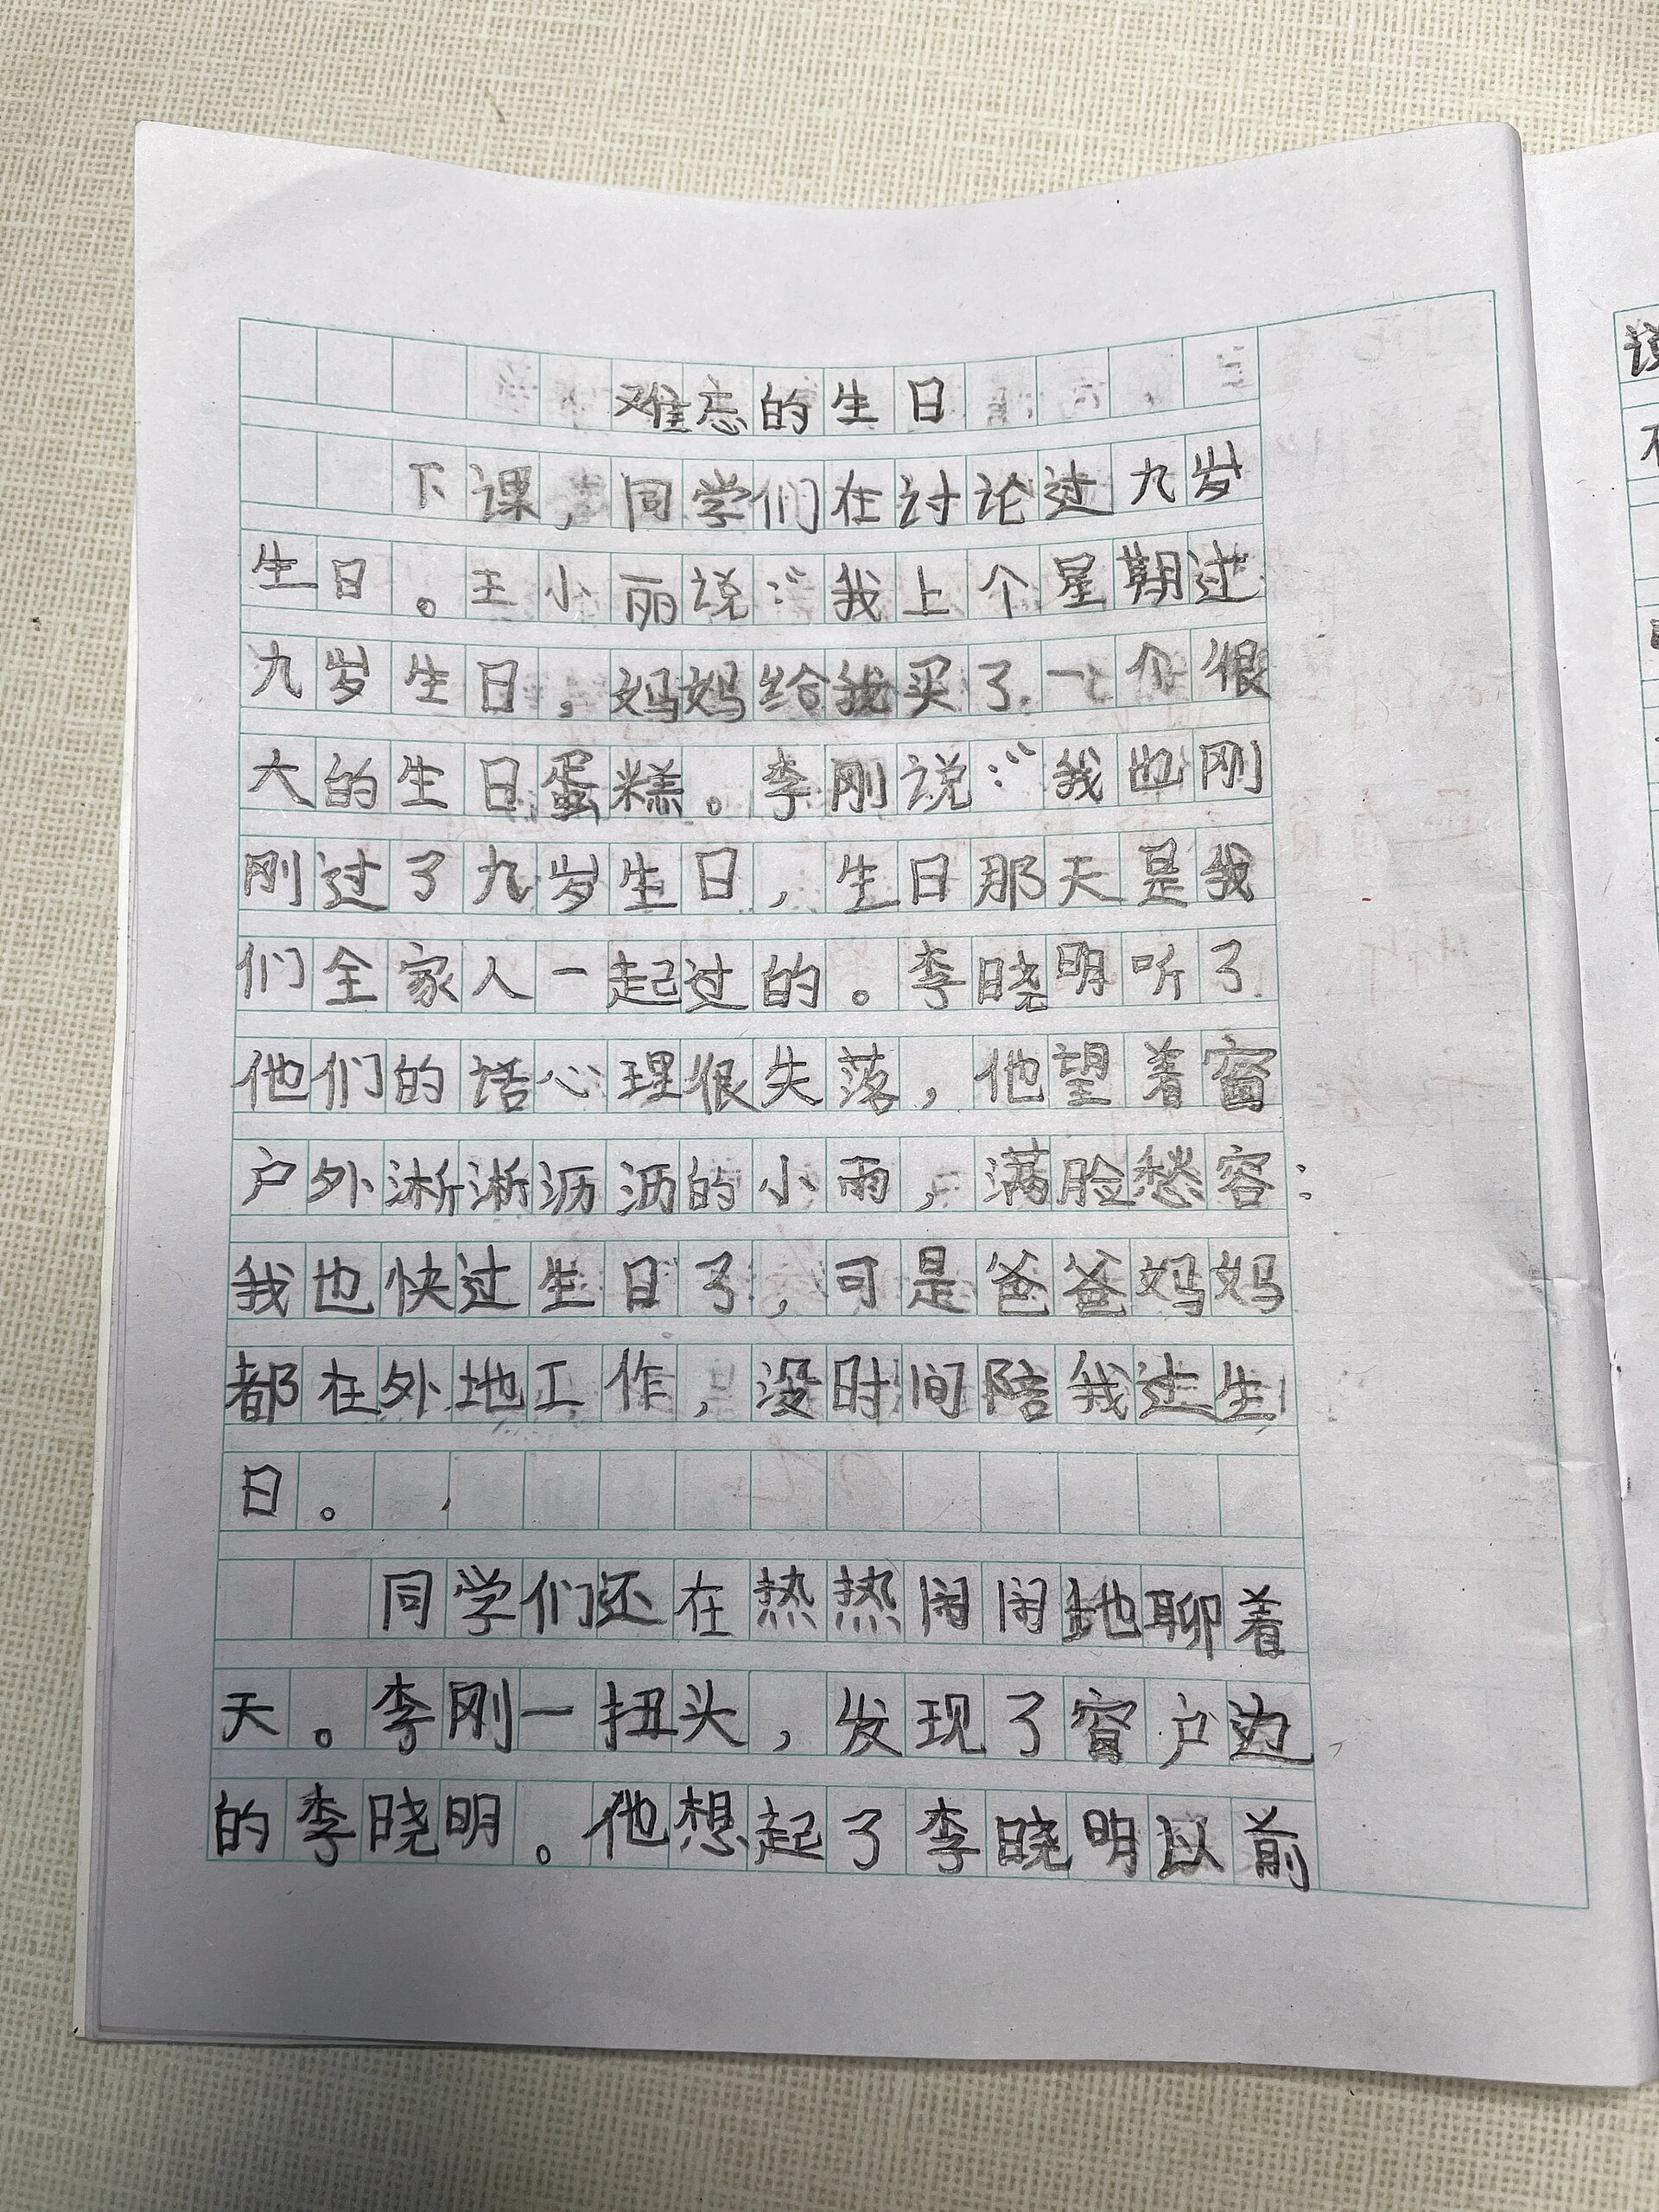 难忘的生日
下课，同学们在讨论过九岁
生日。王小丽说：“我上个星期过
九岁生日，妈妈给我买了一个很
大的生日蛋糕。李刚说：“我也刚
刚过了九岁生日，生日那天是我
们全家人一起过的。李晓明听了
他们的话心理很失落，他望着窗
户外淅淅沥沥的小雨，满脸愁容：
我也快过生日了，可是爸爸妈妈
都在外地工作，没时间陪我过生
日。
同学们还在热热闹闹地聊着
天。李刚一扭头，发现了窗户边
的李晓明。他想起了李晓明以前